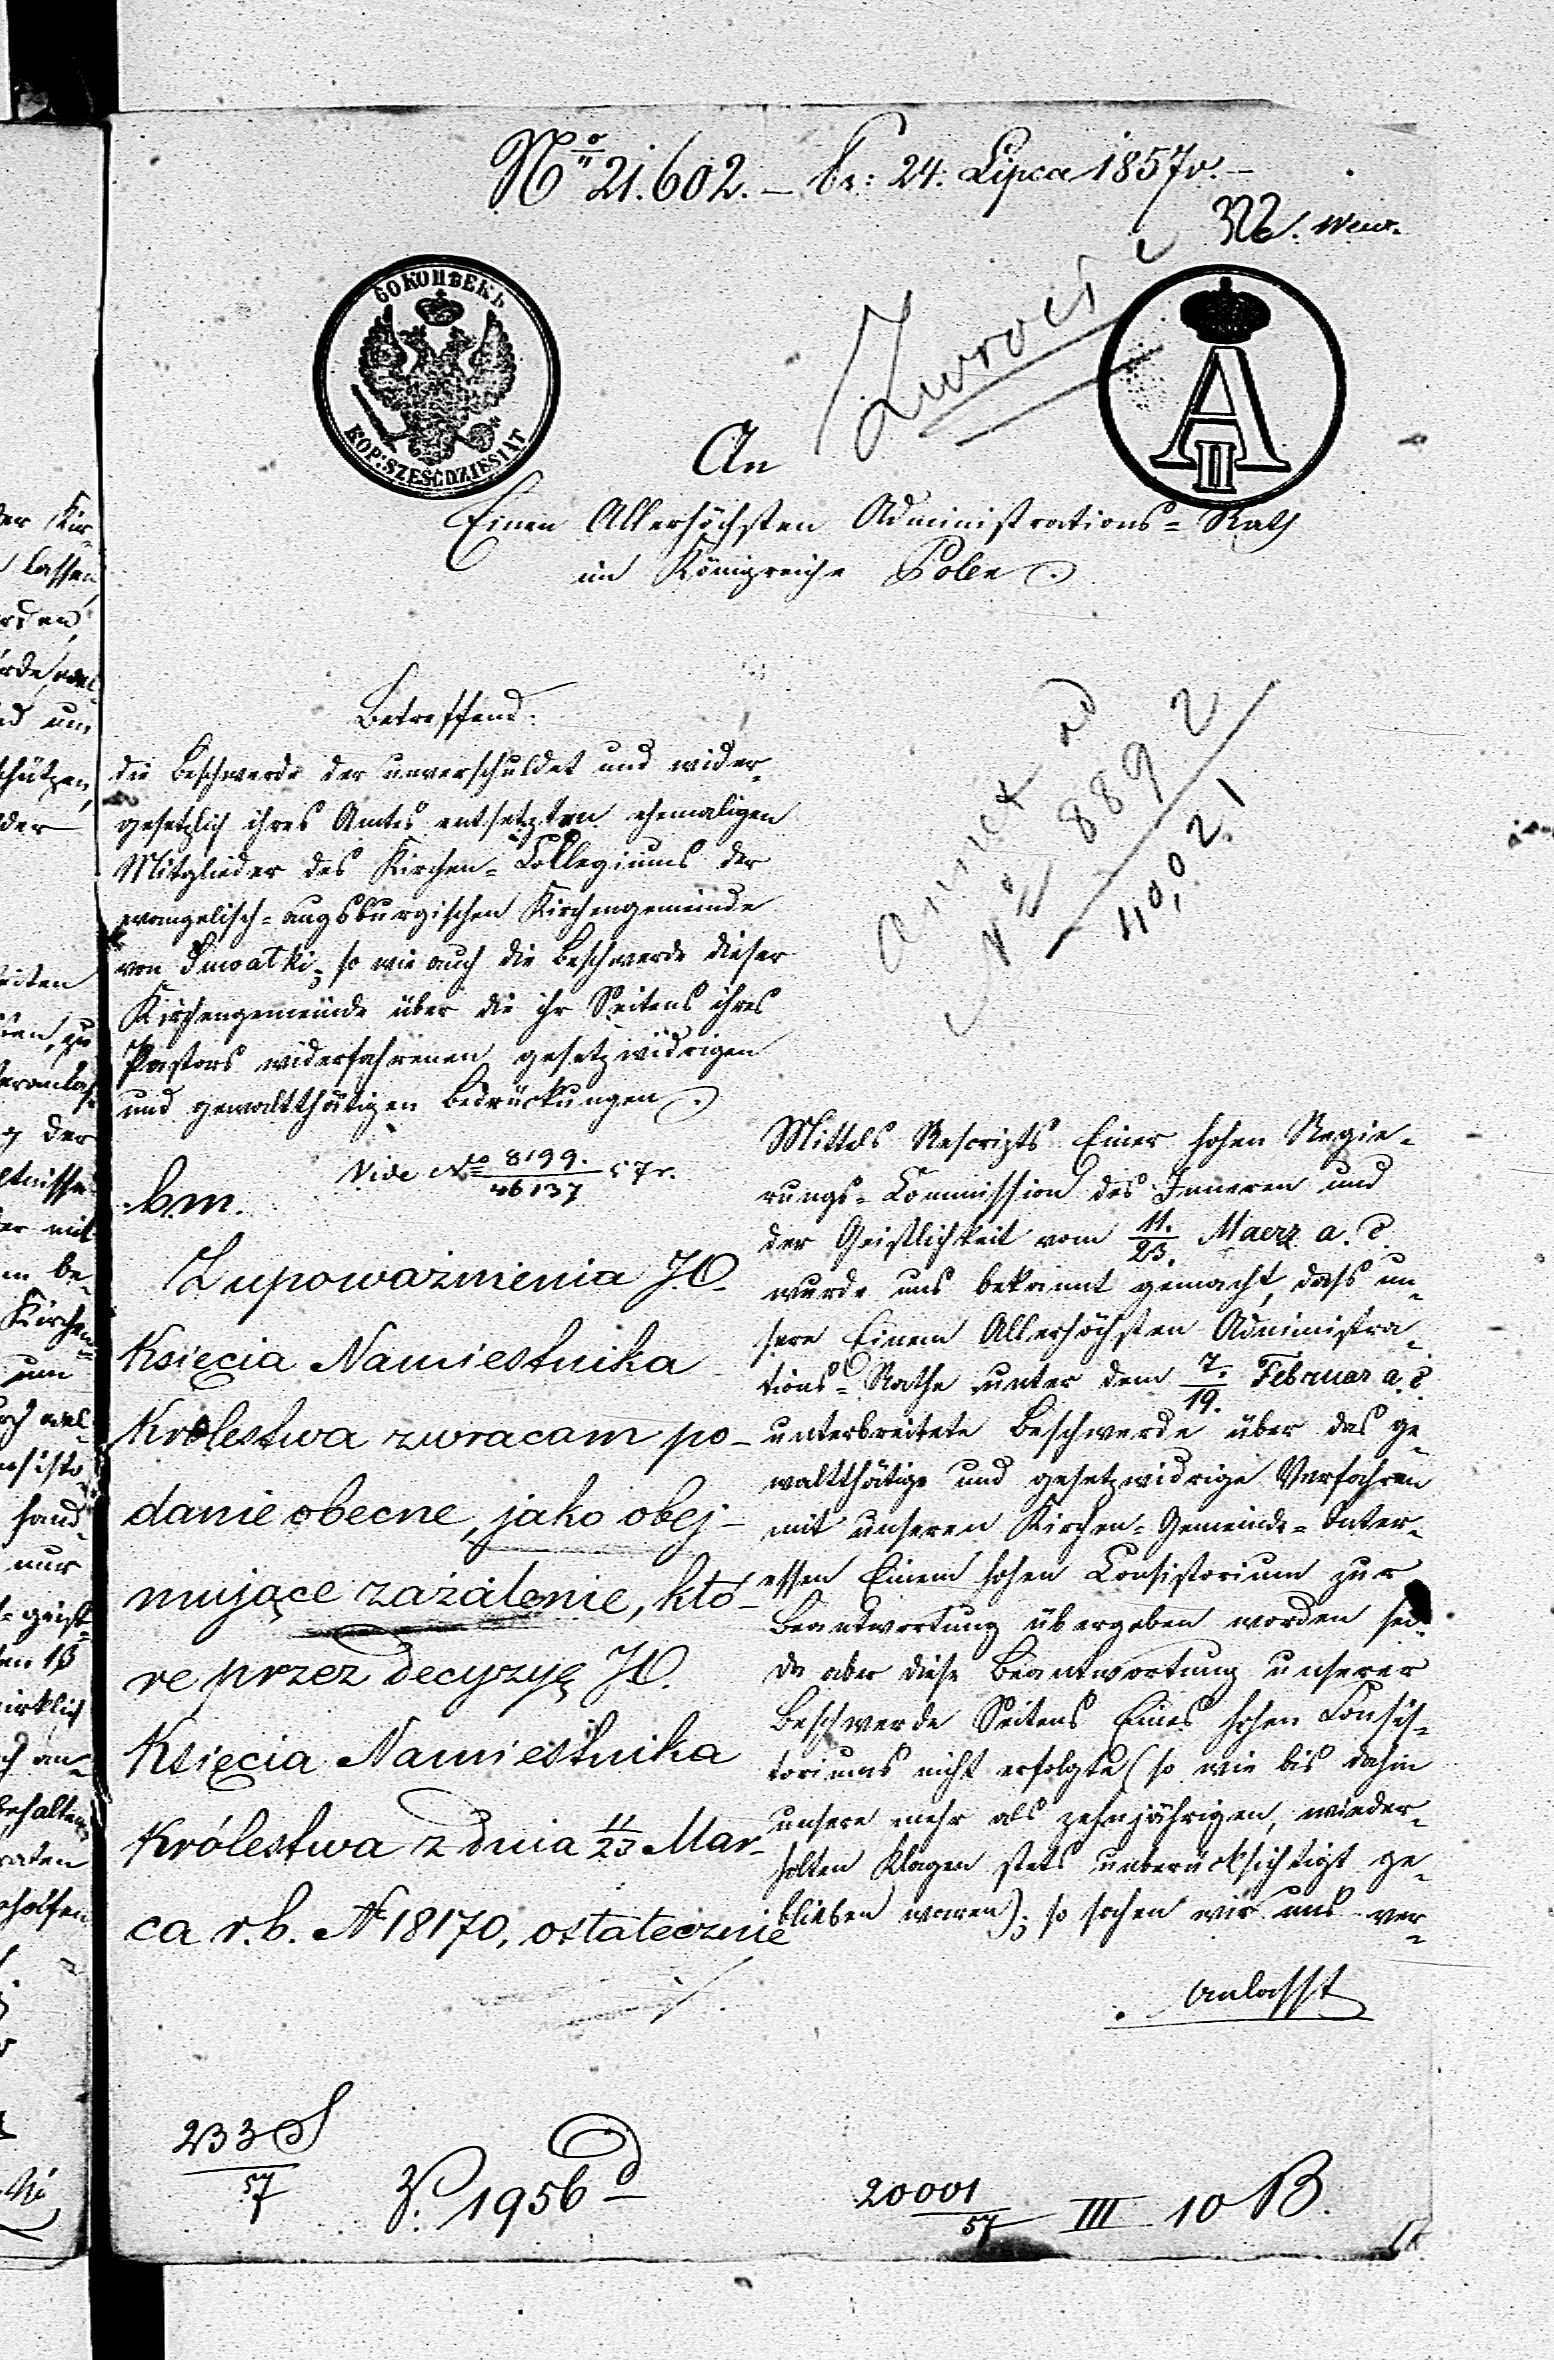 No 21.602. – Pr: 24. Lipca 1857 r. –
322. Wew.
60 КОПѢЕКЪ
KOP: SZEŚĆDZIESIĄT
A II
Zwrócić
An
Einen Allerhöchsten Administrations-Rath
im Königreiche Polen.
Betreffend:
die Beschwerde der unverschuldet und wider-
gesetzlich ihres Amtes entsetzten ehemaligen
Mitglieder des Kirchen-Collegiums der
evangelisch-augsburgischen Kirchengemeinde
von Suwalki; so wie auch die Beschwerde dieser
Kirchengemeinde über die ihr Seitens ihres
Pastors widerfahrenen gesetzwidrigen
und gewaltthätigen Bedrückungen.
Vide No 8199./46137 57 r.
b.m.
Z upoważnienia J.O.
Księcia Namiestnika
Królestwa zwracam po-
danie obecne, jako obej-
mujące zażalenie, któ-
re przez decyzyę JO.
Księcia Namiestnika
Królestwa z dnia 11/23 Mar-
ca r.b. N 18170, ostatecznie
./.
No 8892
11002.1
Mittels Rescripts Einer hohen Regie-
rungs-Commission des Inneren und
der Geistlichkeit vom 11./23. Maerz a. c.
wurde uns bekannt gemacht, daß un-
sere Einem Allerhöchsten Administra-
tions-Rathe unter dem 7./19. Februar a. c.
unterbreitete Beschwerde über das ge-
waltthätige und gesetzwidrige Verfahren
mit unseren Kirchen-Gemeinde-Inter-
essen Einem hohen Consistorium zur
Beantwortung übergeben worden sei.
Da aber diese Beantwortung unserer
Beschwerde Seitens Eines hohen Consis-
toriums nicht erfolgte (so wie bis dahin
unsere mehr als zehnjährigen, wieder-
holten Klagen stets unberücksichtigt ge-
blieben waren); so sehen wir uns ver-
anlasst
233 S/57
1956
20001/57 III 10 B.